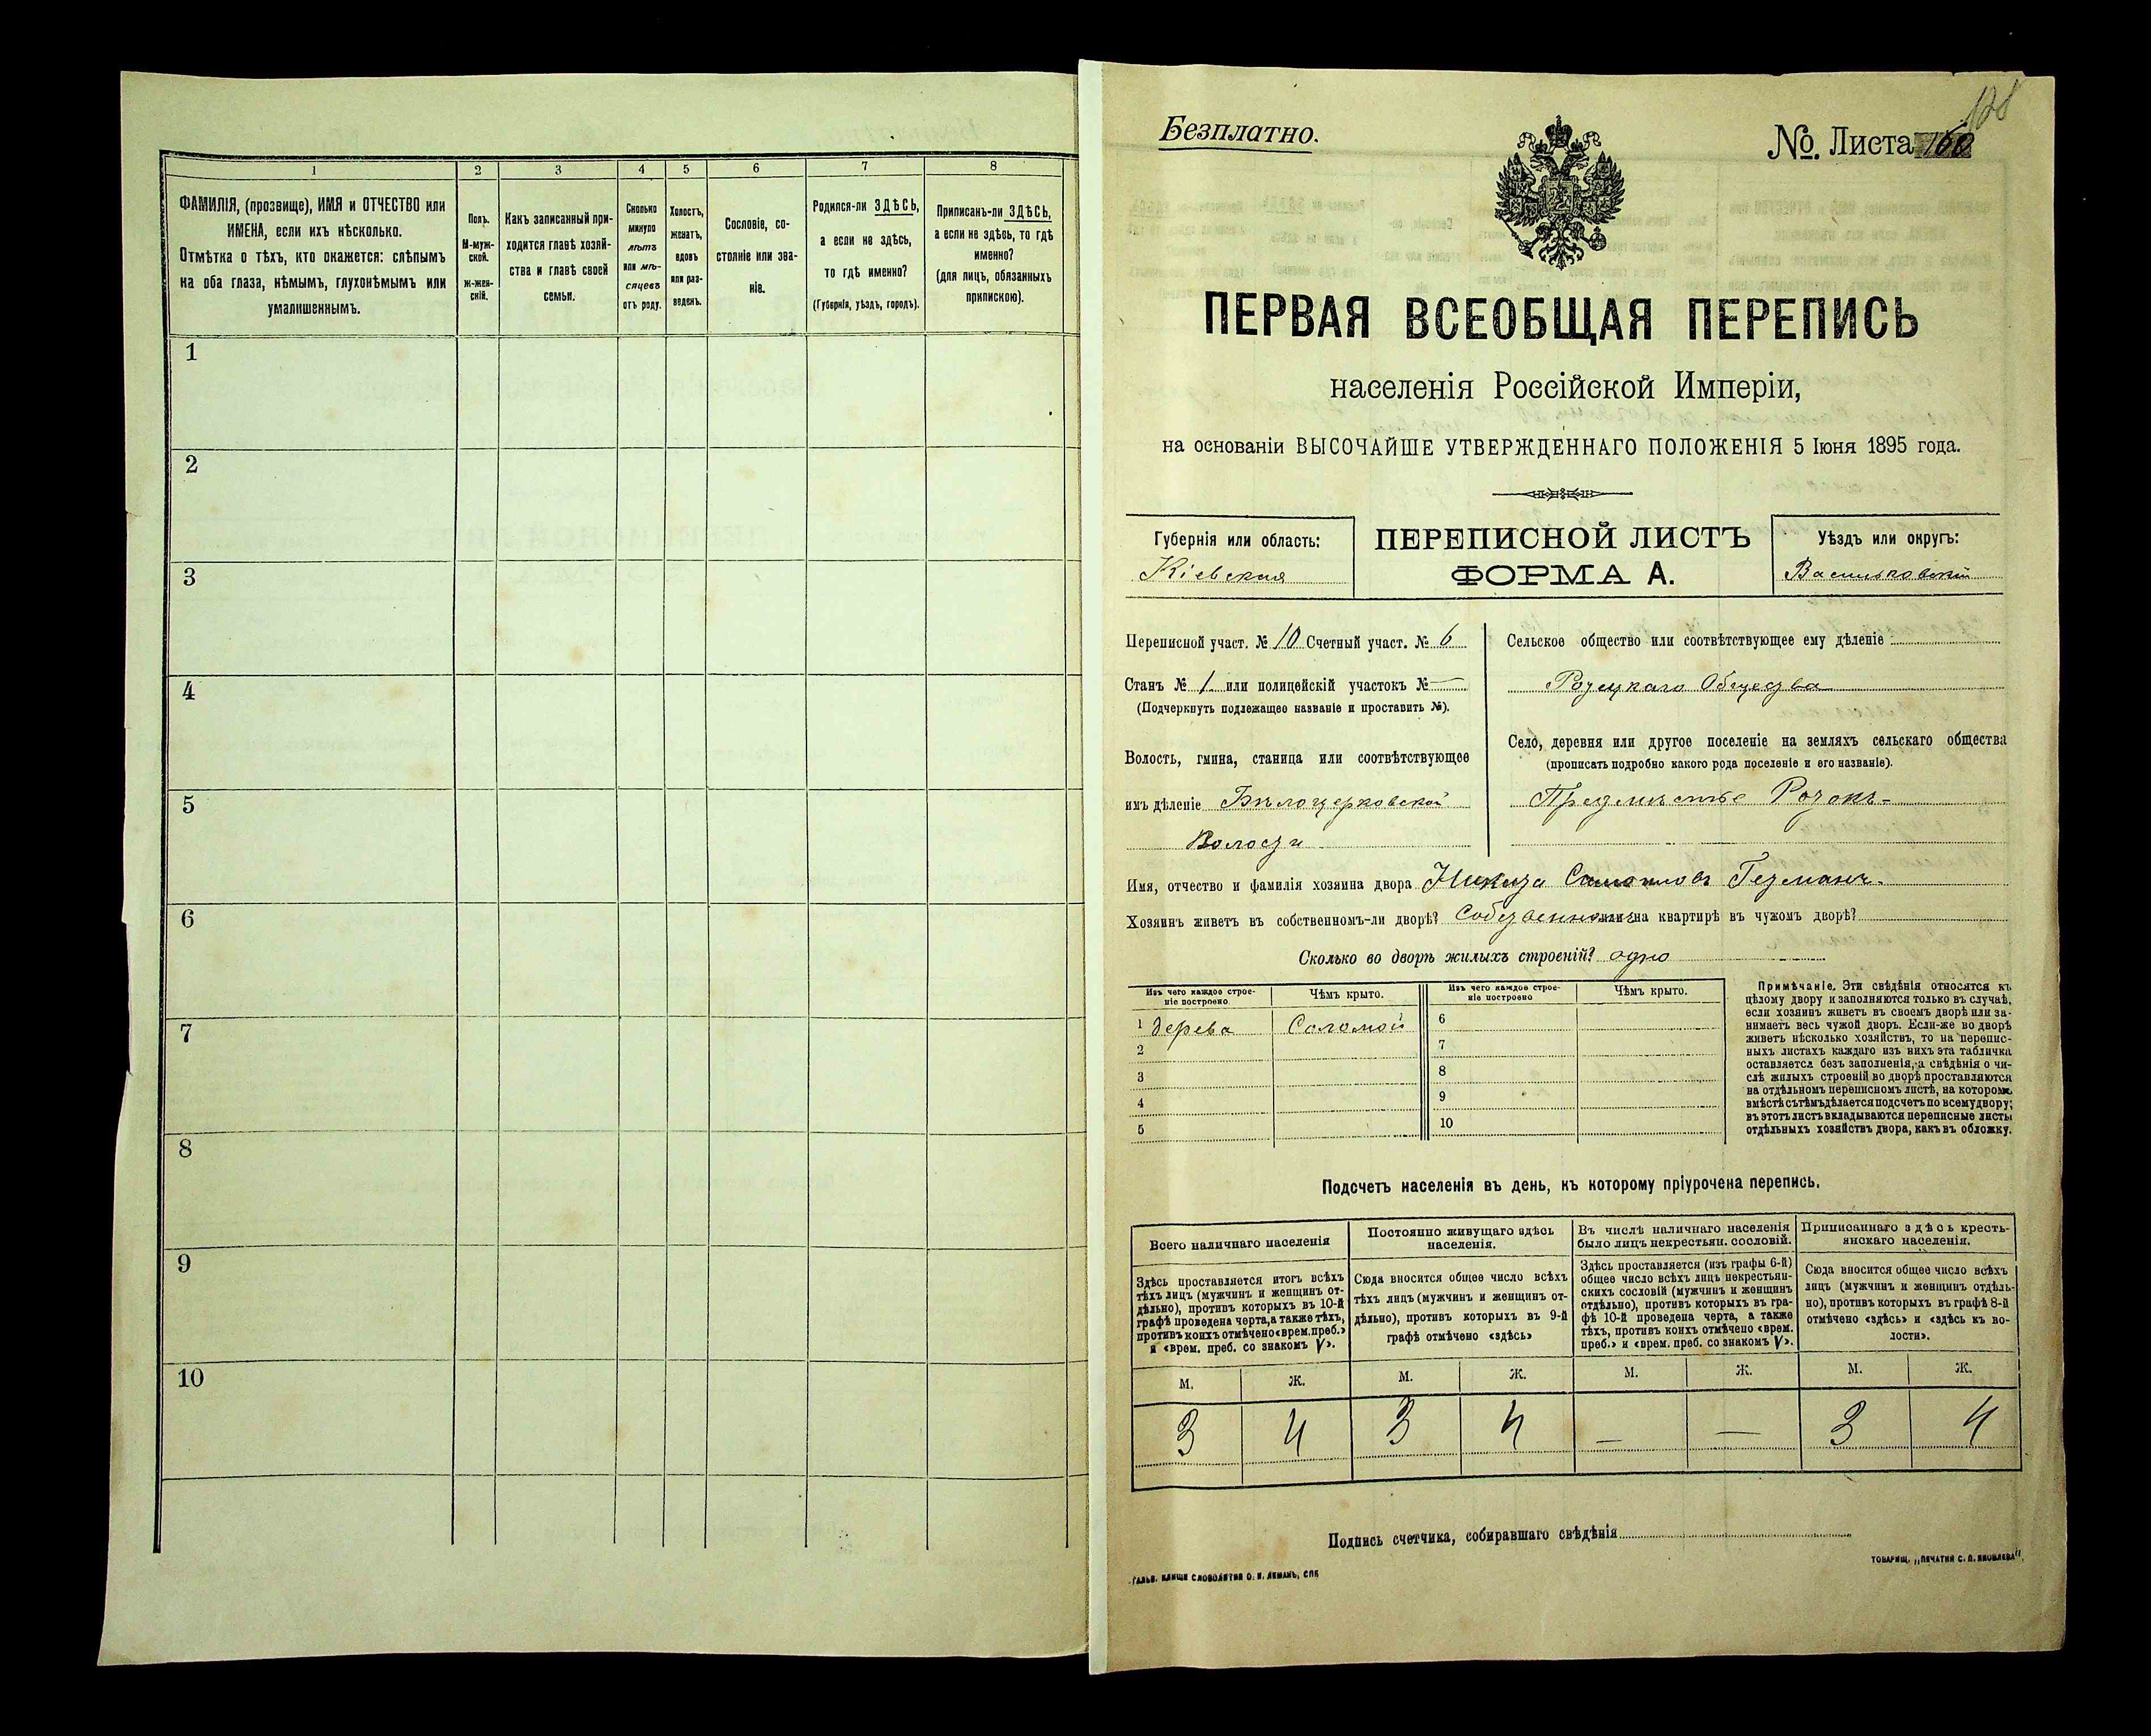 1
2
3
4
5
6
7
8
ФАМИЛІЯ, (прозвище), ИМЯ и ОТЧЕСТВО или
ИМЕНА, если ихъ нѣсколько.
Отмѣтка о тѣхъ, кто окажется: слѣпымъ
на оба глаза, нѣмымъ, глухонѣмымъ или
умалишеннымъ.
Полъ.
М-муж-
ской.
Ж-жен-
скій.
Какъ записанный при-
ходится главѣ хозяй-
ства и главѣ своей
семьи.
Сколько
минуло
лѣтъ
или мѣ-
сяцевъ
отъ роду.
Холостъ,
женатъ,
вдовъ
или раз-
веденъ.
Сословіе, со-
стояніе или зва-
ніе.
Родился-ли ЗДѢСЬ,
а если не здѣсь,
то гдѣ именно?
(Губернія, уѣздъ, городъ).
Приписанъ-ли ЗДѢСЬ,
а если не здѣсь, то гдѣ
именно?
(для лицъ, обязанныхъ
припискою).
1
2
3
4
5
6
7
8
9
10
128
Безплатно.
№. Листа 160
ПЕРВАЯ ВСЕОБЩАЯ ПЕРЕПИСЬ
населенія Россійской Имперіи,
на основаніи ВЫСОЧАЙШЕ УТВЕРЖДЕННАГО ПОЛОЖЕНІЯ 5 Іюня 1895 года.
Губернія или область:
Кіевская
ПЕРЕПИСНОЙ ЛИСТЪ
ФОРМА А.
Уѣздъ или округъ:
Васильковскій
Переписной участ. № 10 Счетный участ. № 6
Станъ № 1 или полицейскій участокъ № —
(Подчеркнуть подлежащее названіе и проставить №).
Волость, гмина, станица или соотвѣтствующее
имъ дѣленіе Бѣлоцерковской
Волости
Сельское общество или соотвѣтствующее ему дѣленіе
Ротецкаго Общества
Село, деревня или другое поселеніе на земляхъ сельскаго общества
(прописать подробно какого рода поселеніе и его названіе).
Предмѣстье Ротокъ
Имя, отчество и фамилія хозяина двора Никита Самоиловъ Гетманъ
Хозяинъ живетъ въ собственномъ-ли дворѣ? Собственномъ или на квартирѣ въ чужомъ дворѣ?
Сколько во дворѣ жилыхъ строеній? одно
Изъ чего каждое строе-
ніе построено
Чѣмъ крыто.
Изъ чего каждое строе-
ніе построено
Чѣмъ крыто.
1 дерева Соломой
2
3
4
5
6
7
8
9
10
Примѣчаніе. Эти свѣдѣнія относятся къ
цѣлому двору и заполняются только въ случаѣ,
если хозяинъ живетъ въ своемъ дворѣ или за-
нимаетъ весь чужой дворъ. Если-же во дворѣ
живетъ нѣсколько хозяйствъ, то на перепис-
ныхъ листахъ каждаго изъ нихъ эта табличка
оставляется безъ заполненія, а свѣдѣнія о чи-
слѣ жилыхъ строеній во дворѣ проставляются
на отдѣльномъ переписномъ листѣ, на которомъ
вмѣстѣ съ тѣмъ дѣлается подсчетъ по всему двору;
въ этотъ листъ вкладываются переписные листы
отдѣльныхъ хозяйствъ двора, какъ въ обложку.
Подсчетъ населенія въ день, къ которому пріурочена перепись.
Всего наличнаго населенія
Постоянно живущаго здѣсь
населенія.
Въ числѣ наличнаго населенія
было лицъ некрестьян. сословій.
Приписаннаго здѣсь кресть-
янскаго населенія.
Здѣсь проставляется итогъ всѣхъ
тѣхъ лицъ (мужчинъ и женщинъ от-
дѣльно), противъ которыхъ въ 10-й
графѣ проведена черта, а также тѣхъ,
противъ коихъ отмѣчено «врем. преб.»
и «врем. преб. со знакомъ V».
Сюда вносится общее число всѣхъ
тѣхъ лицъ (мужчинъ и женщинъ от-
дѣльно), противъ которыхъ въ 9-й
графѣ отмѣчено «здѣсь»
Здѣсь проставляется (изъ графы 6-й)
общее число всѣхъ лицъ некрестьян-
скихъ сословій (мужчинъ и женщинъ
отдѣльно), противъ которыхъ въ гра-
фѣ 10-й проведена черта, а также
тѣхъ, противъ коихъ отмѣчено «врем.
преб.» и «врем. преб. со знакомъ V».
Сюда вносится общее число всѣхъ
лицъ (мужчинъ и женщинъ отдѣль-
но), противъ которыхъ въ графѣ 8-й
отмѣчено «здѣсь» и «здѣсь къ во-
лости».
М. Ж. М. Ж. М. Ж. М. Ж.
3 4 3 4 — — 3 4
Подпись счетчика, собиравшаго свѣдѣнія
ГАЛЬВ. КЛИШЕ СЛОВОЛИТНИ О. И. ЛЕМАНЪ, СПБ
ТОВАРИЩ. „ПЕЧАТНЯ С. П. ЯКОВЛЕВА".